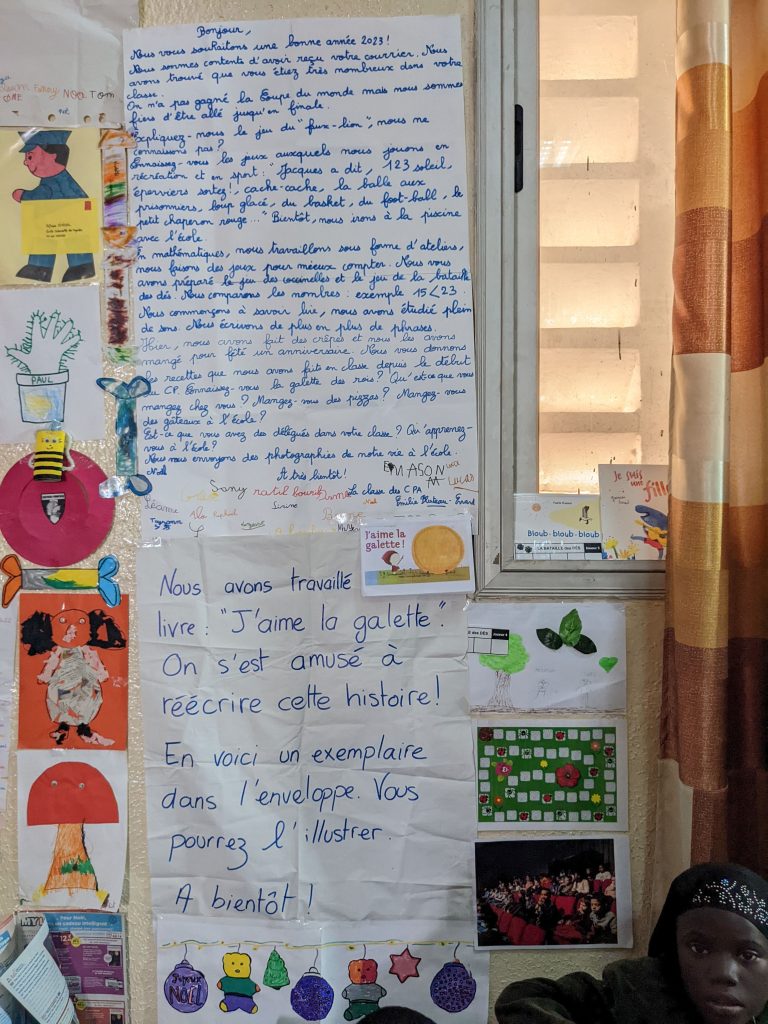 Bonjour,
Nous vous souhaitons une bonne année 2023!
Nous sommes contents d'avoir reçu votre courrier. Nous
avons trouvé que vous étiez très nombreux dans votre
classe.
On n'a pas gagné la Coupe du monde mais nous sommes
fiers d'être allé jusqu'en finale.
Expliquez-nous le jeu du "faux-lion", nous ne
connaissons pas?
Connaissez-vous les jeux auxquels nous jouons en
récréation et en sport: "Jacques a dit, 123 soleil,
éperviers sortez!, cache-cache, la balle aux
prisonniers, loup glacé, du basket, du foot-ball, le
petit chaperon rouge..." Bientôt, nous irons à la piscine
avec l'école.
En mathématiques, nous travaillons sous forme d'ateliers,
nous faisons des jeux pour mieux compter. Nous vous
avons préparé le jeu des coccinelles et le jeu de la bataille
des dés. Nous comparons les nombres: exemple 15<23.
Nous commençons à savoir lire, nous avons étudié plein
de sons. Nous écrivons de plus en plus de phrases.
Hier, nous avons fait des crêpes et nous les avons
mangé pour fêté un anniversaire. Nous vous donnons
les recettes que nous avons fait en classe depuis le début
du CP. Connaissez-vous la galette des rois? Qu'est-ce que vous
mangez chez vous? Mangez-vous des pizzas? Mangez-vous
des gâteaux à l'école?
Est-ce que vous avez des délégués dans votre classe? Qu'apprenez-
vous à l'école?
Nous nous envoyons des photographies de notre vie à l'école.
A très bientôt!
MASON
LUCAS
Sany
La classe des CPA
Raphaël
J'aime la
galette!
Nous avons travaillé
livre: "J'aime la galette".
On s'est amusé à
réécrire cette histoire!
En voici un exemplaire
dans l'enveloppe. Vous
pourrez l'illustrer.
A bientôt!
Joyeux
NOËL
NOA TOM
PAUL
Je suis
une fille
Bloub-bloub-bloub
LA BATAILLE des DÉS
DÉS
MY
Pour Noël,